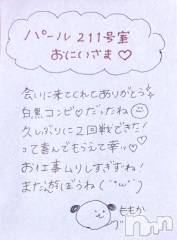 パール 211号室
おにいさま♡
会いに来てくれてありがとう
白黒コンビ♡だったね☺
久しぶりに2回戦できた!
って喜んでもらえて幸ッ♡
お仕事ムリしすぎずね!
また遊ぼうね(´˘`)
ももか